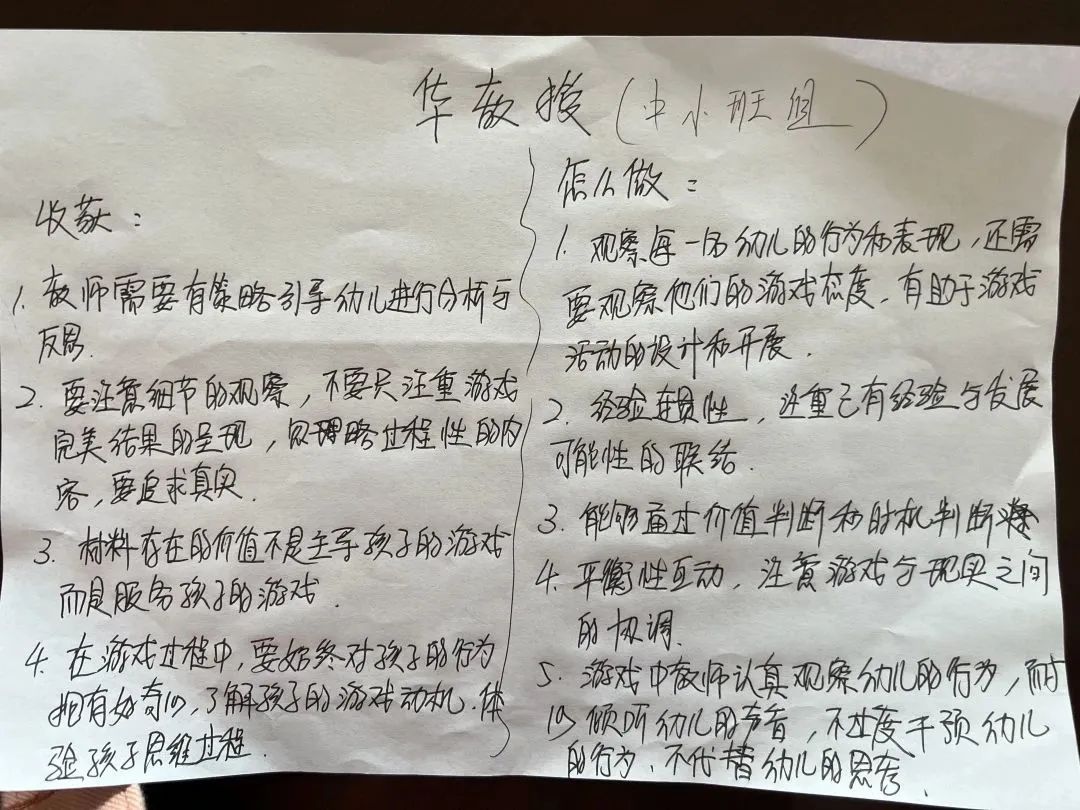 华教授（中小班组）
收获：
1. 教师需要有策略引导幼儿进行分析与
反思.
2. 要注意细节的观察，不要只注重游戏
完美结果的呈现，忽略过程性的内
容，要追求真实.
3. 材料存在的价值不是主导孩子的游戏
而是服务孩子的游戏.
4. 在游戏过程中，要始终对孩子的行为
拥有好奇心，了解孩子的游戏动机.体
验孩子思维过程.
怎么做：
1. 观察每一名幼儿的行为和表现，还需
要观察他们的游戏态度，有助于游戏
活动的设计和开展.
2. 经验连贯性，注重已有经验与发展
可能性的联结.
3. 能够通过价值判断和时机判断
4. 平衡性互动，注意游戏与现实之间
的协调.
5. 游戏中教师认真观察幼儿的行为，耐
心倾听幼儿的声音，不过度干预幼儿
的行为、不代替幼儿的思考.